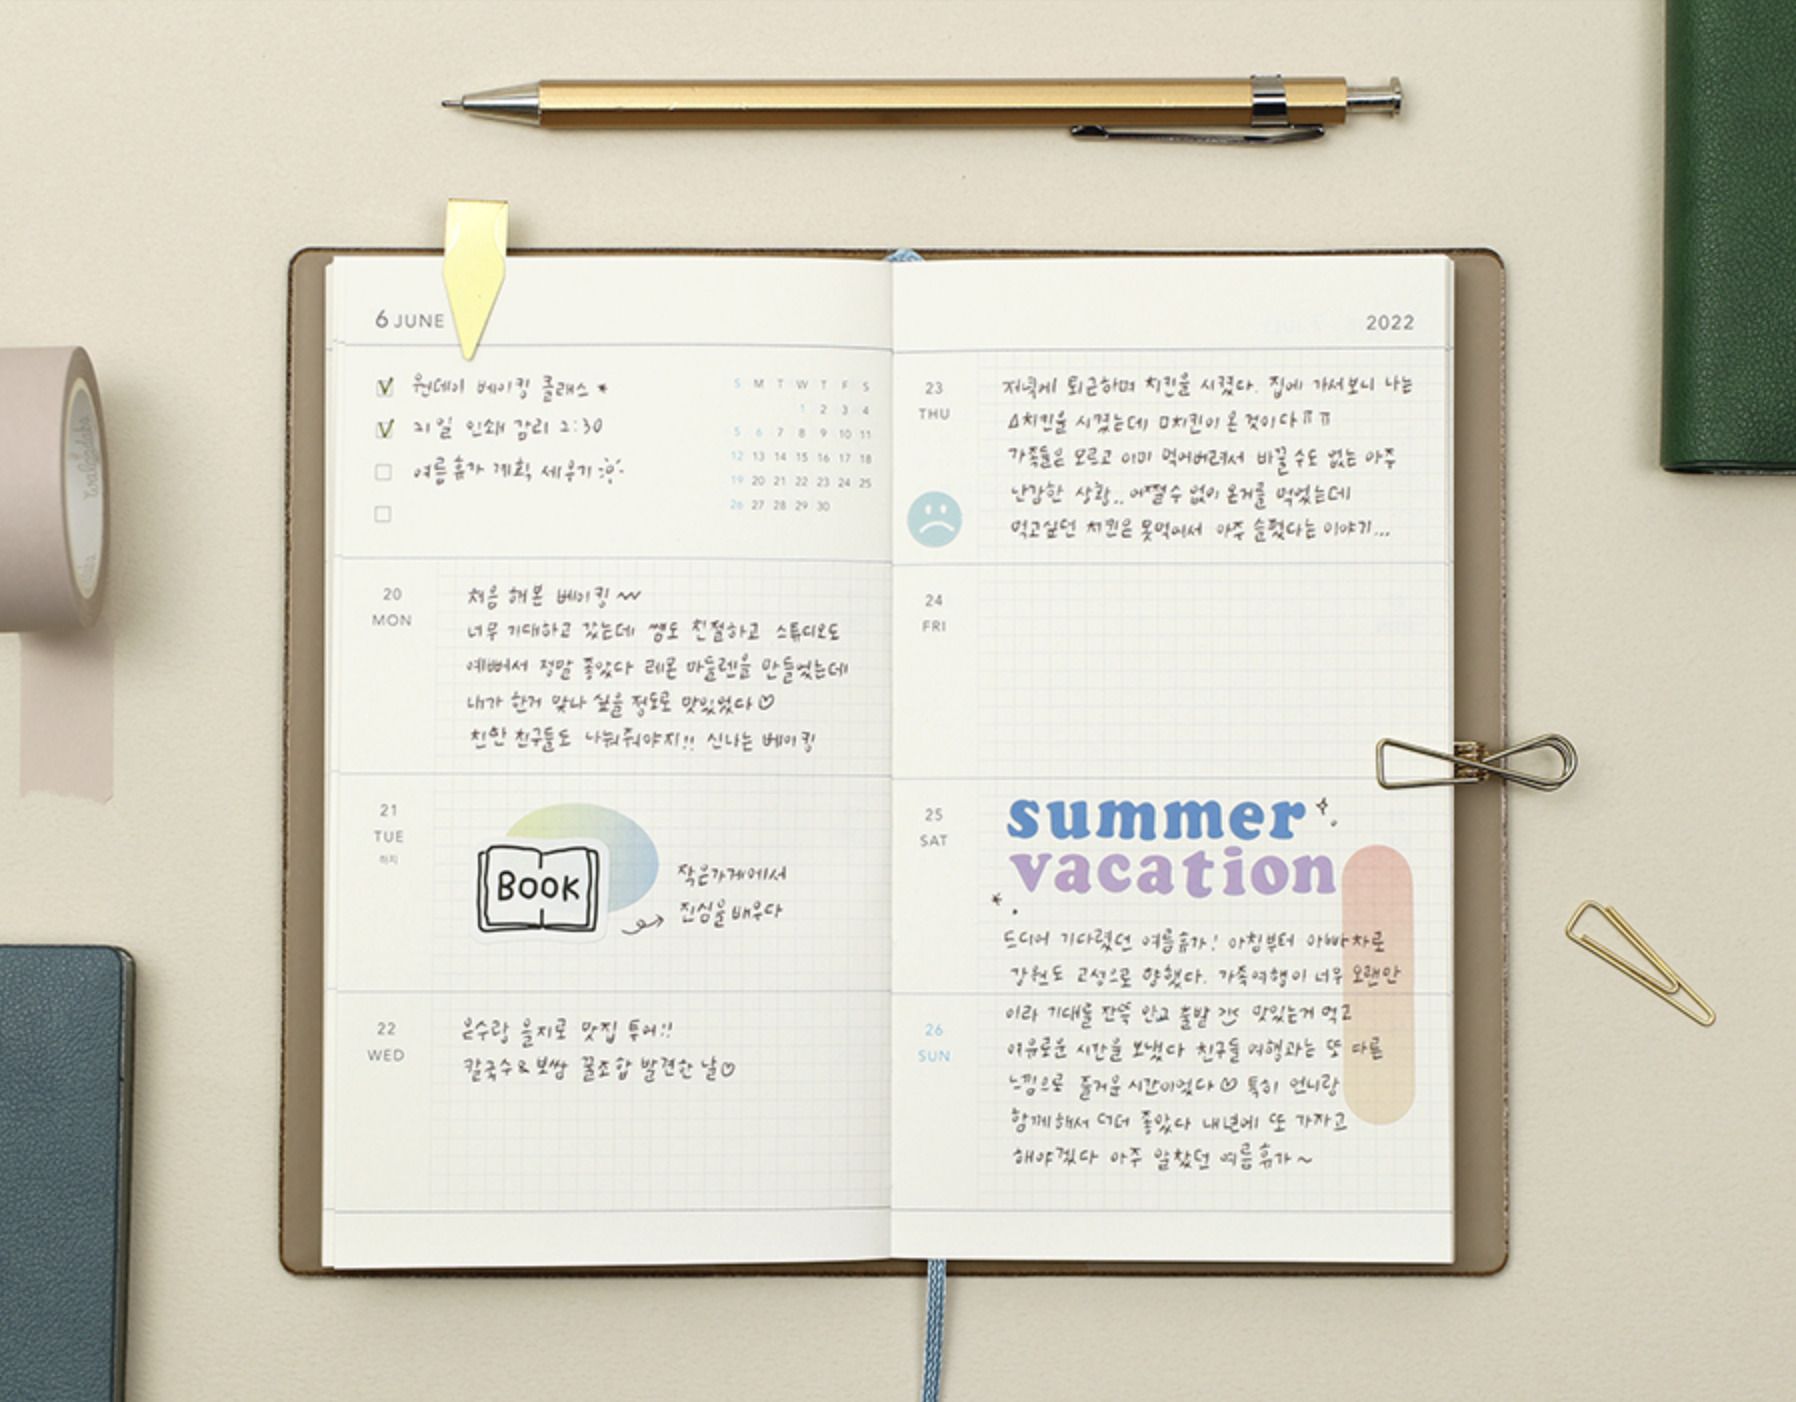 6 JUNE
원데이 베이킹 클래스 *
21일 인쇄 감리 2:30
여름휴가 계획 세우기
S M T W T F S
1 2 3 4
5 6 7 8 9 10 11
12 13 14 15 16 17 18
19 20 21 22 23 24 25
26 27 28 29 30
20
MON
처음 해본 베이킹~
너무 기대하고 갔는데 쌤도 친절하고 스튜디오도
예뻐서 정말 좋았다 레몬 마들렌을 만들었는데
내가 한거 맞나 싶을 정도로 맛있었다♡
친한 친구들도 나눠줘야지!! 신나는 베이킹
21
TUE
하지
BOOK
작은가게에서
진심을배우다
22
WED
은수랑 을지로 맛집 투어!!
칼국수&보쌈 꿀조합 발견한 날♡
2022
23
THU
저녁에 퇴근하며 치킨을 시켰다. 집에 가서보니 나는
△치킨을 시켰는데 □치킨이 온 것이다ㅠㅠ
가족들은 모르고 이미 먹어버려서 바꿀 수도 없는 아주
난감한 상황.. 어쩔수 없이 온거를 먹었는데
먹고싶던 치킨은 못먹어서 아주 슬펐다는 이야기...
24
FRI
25
SAT
summer
vacation
드디어 기다렸던 여름휴가! 아침부터 아빠차로
강원도 고성으로 향했다. 가족여행이 너무 오랜만
이라 기대를 잔뜩 안고 출발 맛있는거 먹고
26
SUN
여유로운 시간을 보냈다 친구들 여행과는 또 다른
느낌으로 즐거운 시간이었다♡ 특히 언니랑
함께해서 더더 좋았다 내년에 또 가자고
해야겠다 아주 알찼던 여름휴가~